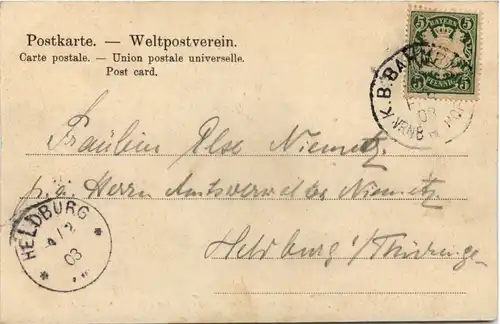 Postkarte. — Weltpostverein.
Carte postale. — Union postale universelle.
Post card.
5 BAYERN 5
5 PFENNIG 5
K.B. BAHN
03
Fräulein Else Niemetz
p. a. Herrn Amtsverwalter Niemetz
Heldburg / Thüringen
HELDBURG
4/2
03